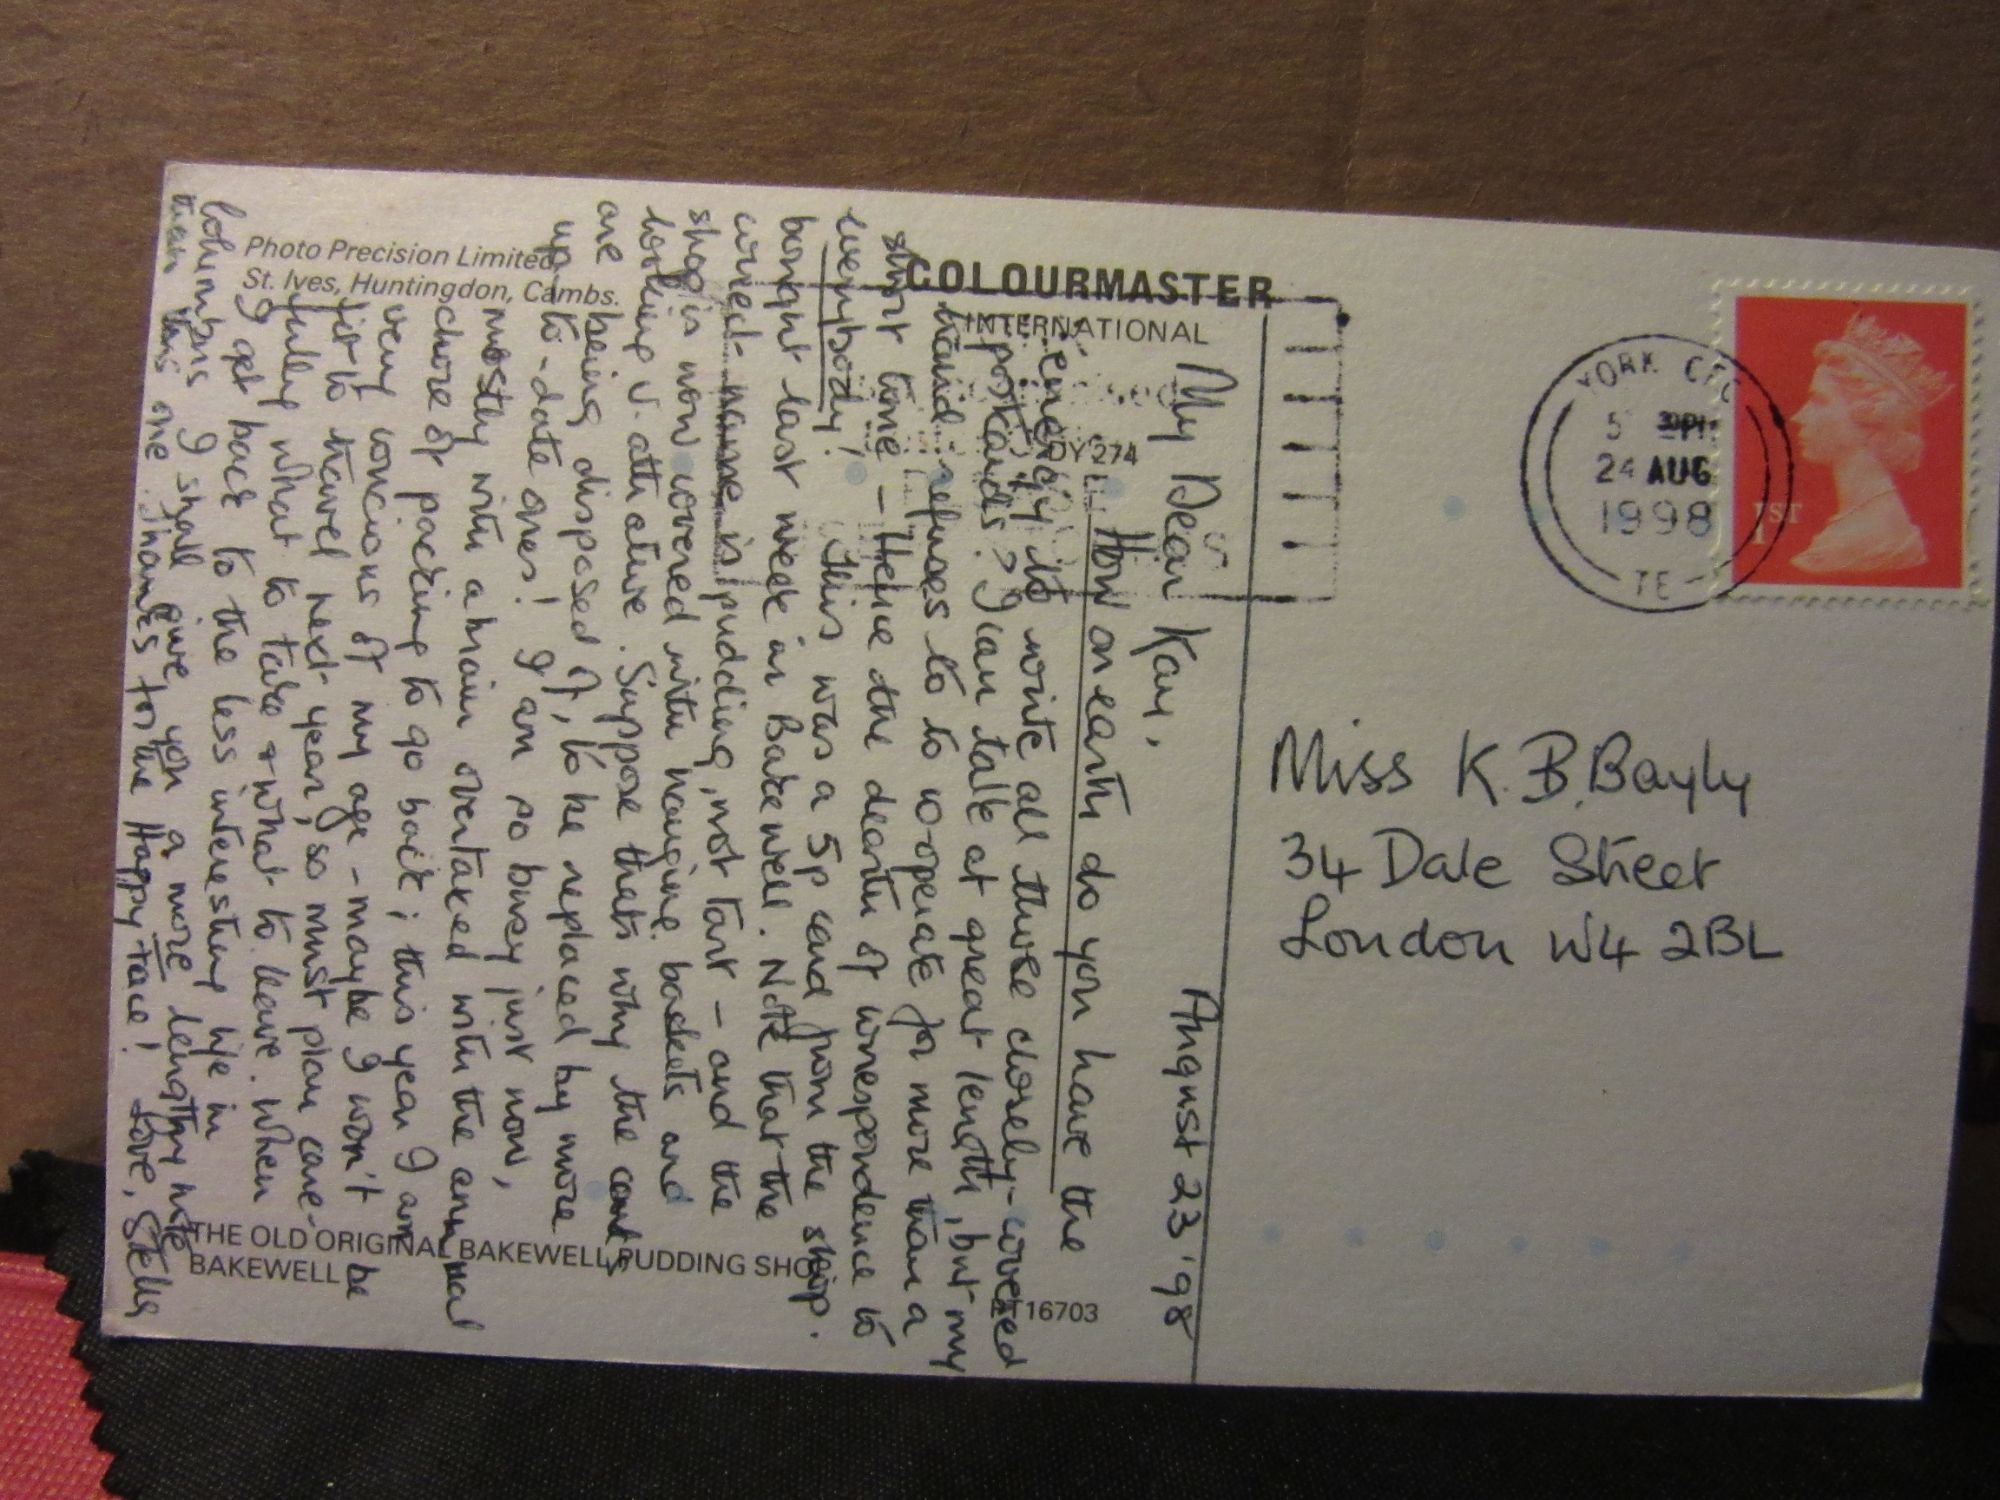 Photo Precision Limited,
St. Ives, Huntingdon, Cambs.
COLOURMASTER
INTERNATIONAL
DY 274
THE OLD ORIGINAL BAKEWELL PUDDING SHOP.
BAKEWELL
16703
August 23 '98
My Dear Kay,
How on earth do you have the
energy to write all those closely-covered
postcards? I can talk at great length, but my
hand refuses to to co-operate for more than a
short time – Hence the dearth of correspondence to
everybody! This was a 5p card from the shop
bought last week in Bakewell. Note that the
correct name is pudding, not tart – and the
shop is now covered with hanging baskets and
looking v. attractive. Suppose that's why the cards
are being disposed of, to be replaced by more
up-to-date ones! I am so busy just now,
mostly with a brain overtaxed with the annual
chore of packing to go back; this year I am
very concious of my age – maybe I won't be
fit to travel next year, so must plan care-
fully what to take & what to leave. When
I get back to the less interesting life in
Columbus I shall give you a more lengthy note
than this one. Thanks for the Happy face! Love, Stella
YORK
24 AUG
1998
1ST
Miss K. B. Bayly
34 Dale Street
London W4 2BL